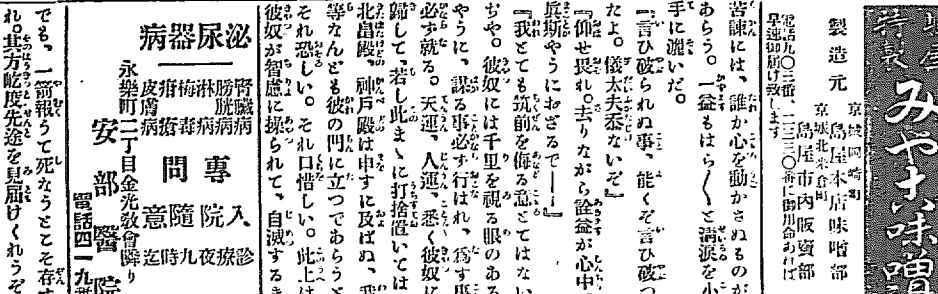 特製
みやこ味噌
製造元
京城岡崎町
島屋本店味噌部
京城北米倉町
島屋市内販賣部
電話九〇三番、二三三〇番に御用命あれば
早速御届け致します
苦諫には、誰か心を動かさぬものが
あらう。一益もはら〳〵と淸淚を小
手に漉いだ。
『言ひ破られぬ事、能くぞ言ひ破つ
たよ。儀太夫忝ないぞ』
『仰せ畏れ。去りながら詮益が心中
兵斯やうにおざるで――』
『我とても筑前を侮る意とてはない
ぢや。彼奴には千里を視る眼のある
やうに、謀る事必ず行はれ、爲す事
必ず就る。天運、人運、悉く彼奴に
歸して、若し此まゝに打捨置いては
北畠殿、神戸殿は申すに及ばぬ、我
等なんども彼の門に立つであらうと
それ恐しい。それ口惜しい。此上は
彼奴が智慮に操られて、自滅するま
泌尿器病
腎臟病
膀胱病
淋病
梅毒
瘡
皮膚病
專問
入院隨意
診療
夜九時迄
永樂町二丁目金光敎會隣り
安部醫院
電話四一九
でも、一箭報うて死なうとこそ存す
れ。其方屹度先途を見届けくれうぞ